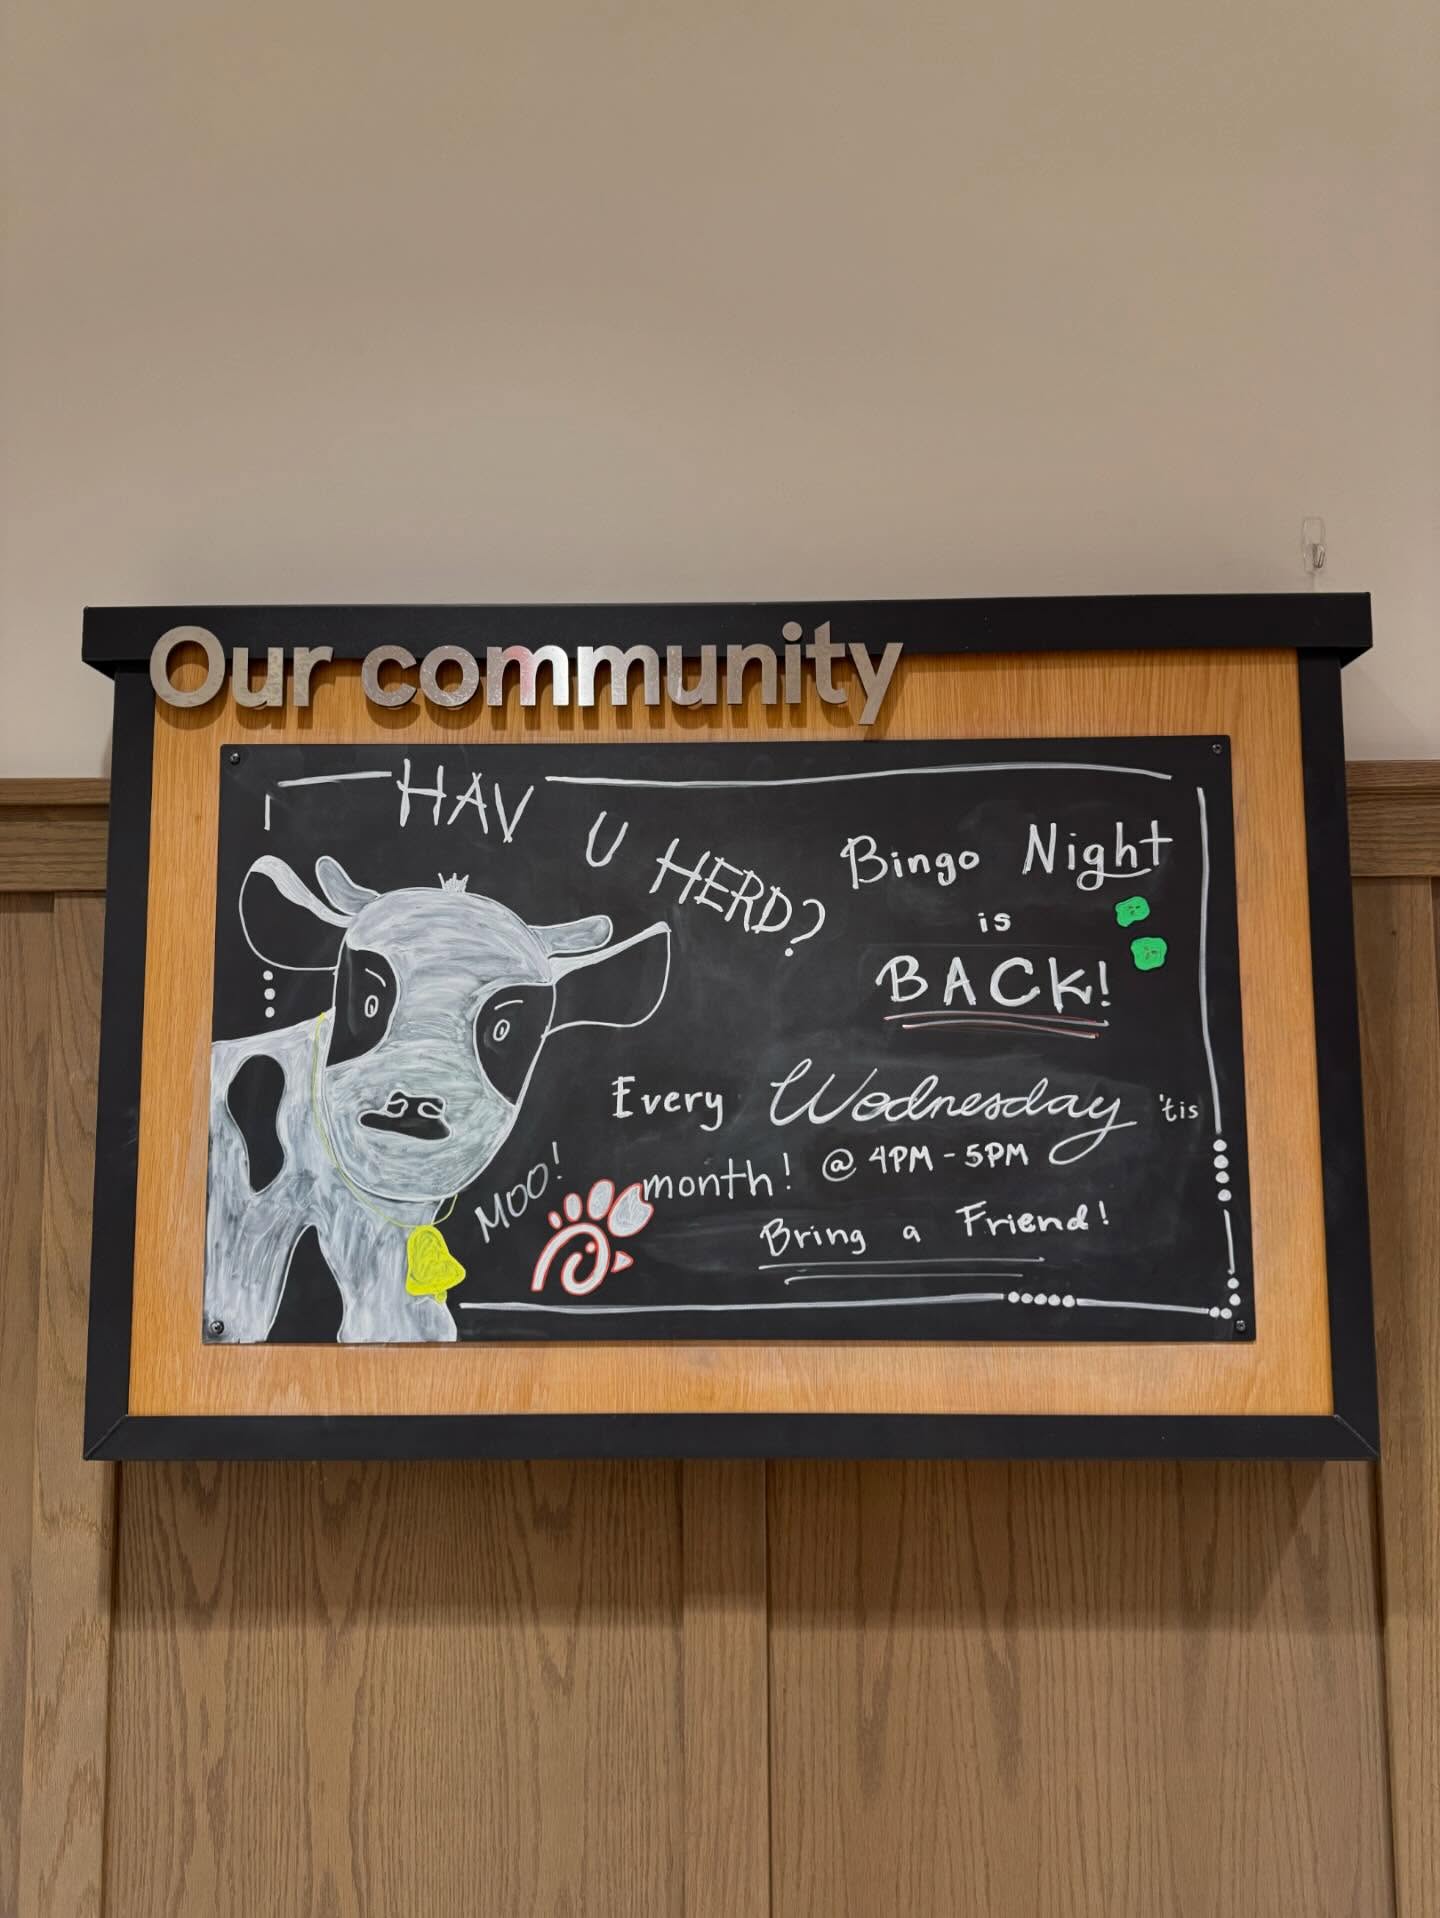 Our community
HAV U HERD?
Bingo Night
is
BACK!
Every Wednesday 'tis
month! @ 4PM - 5PM
Bring a Friend!
MOO!